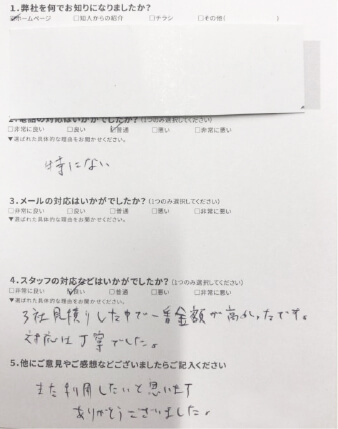 1.弊社を何でお知りになりましたか?
☑ホームページ □知人からの紹介 □チラシ □その他(
2.電話の対応はいかがでしたか?(1つのみ選択してください)
□非常に良い □良い ☑普通 □悪い □非常に悪い
▼選ばれた具体的な理由をお聞かせください。
特にない
3.メールの対応はいかがでしたか?(1つのみ選択してください)
□非常に良い □良い □普通 □悪い □非常に悪い
▼選ばれた具体的な理由をお聞かせください。
4.スタッフの対応などはいかがでしたか?(1つのみ選択してください)
□非常に良い ☑良い □普通 □悪い □非常に悪い
▼選ばれた具体的な理由をお聞かせください。
3社見積りした中で一番金額が高かったです。
対応は丁寧でした。
5.他にご意見やご感想などございましたらご記入ください
また利用したいと思います
ありがとうございました。